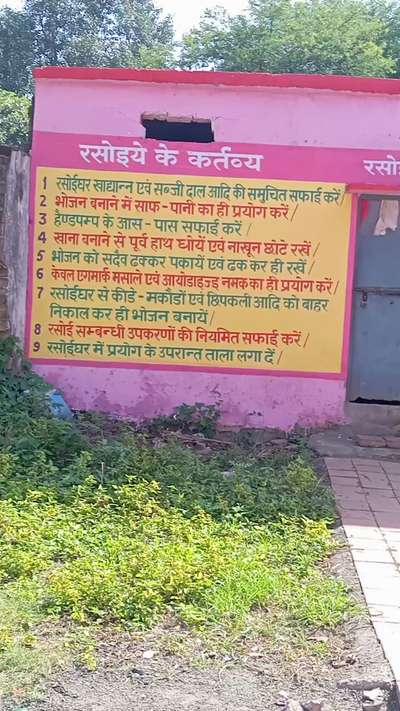 रसोइये के कर्तव्य
रसो
1 रसोईघर खाद्यान्न एवं सब्जी दाल आदि की समुचित सफाई करें/
2 भोजन बनाने में साफ - पानी का ही प्रयोग करें/
3 हैण्डपम्प के आस - पास सफाई करें/
4 खाना बनाने से पूर्व हाथ धोयें एवं नाखून छोटे रखें/
5 भोजन को सदैव ढक्कर पकायें एवं ढक कर ही रखें/
6 केवल एगमार्क मसाले एवं आयोडाइज्ड नमक का ही प्रयोग करें/
7 रसोईघर से कीडे - मकोडों एवं छिपकली आदि को बाहर
निकाल कर ही भोजन बनायें/
8 रसोई सम्बन्धी उपकरणों की नियमित सफाई करें/
9 रसोईघर में प्रयोग के उपरान्त ताला लगा दें/